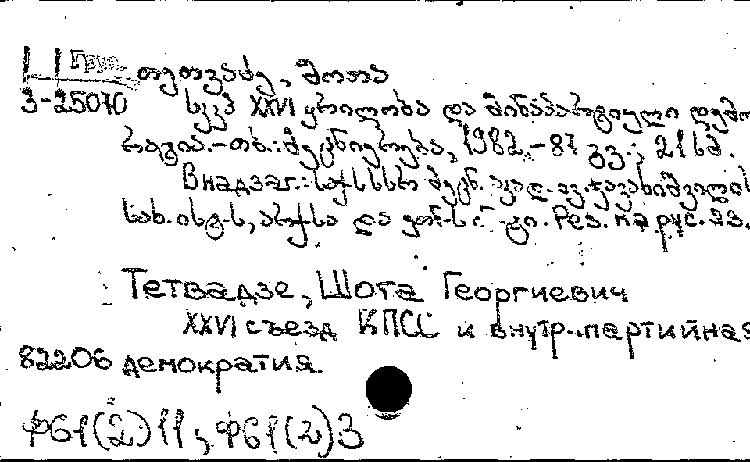 Груз. თეთვაძე, შოთა
3-25070 სკკპ XXVI ყრილობა და შინაპარტიული დემო
კრატია.-თბ.: მეცნიერება, 1982.-87 გვ.; 21 სმ.
В надзаг.: საქ სსრ მეცნ. აკად. ივ. ჯავახიშვილის
სახ. ისტ-ს, არქ-სა და Рез. на рус. яз.
Тетвадзе, Шота Георгиевич
XXVI съезд КПСС и внутр.-партийная
82206 демократия.
Ф61(2)11, Ф61(2)3